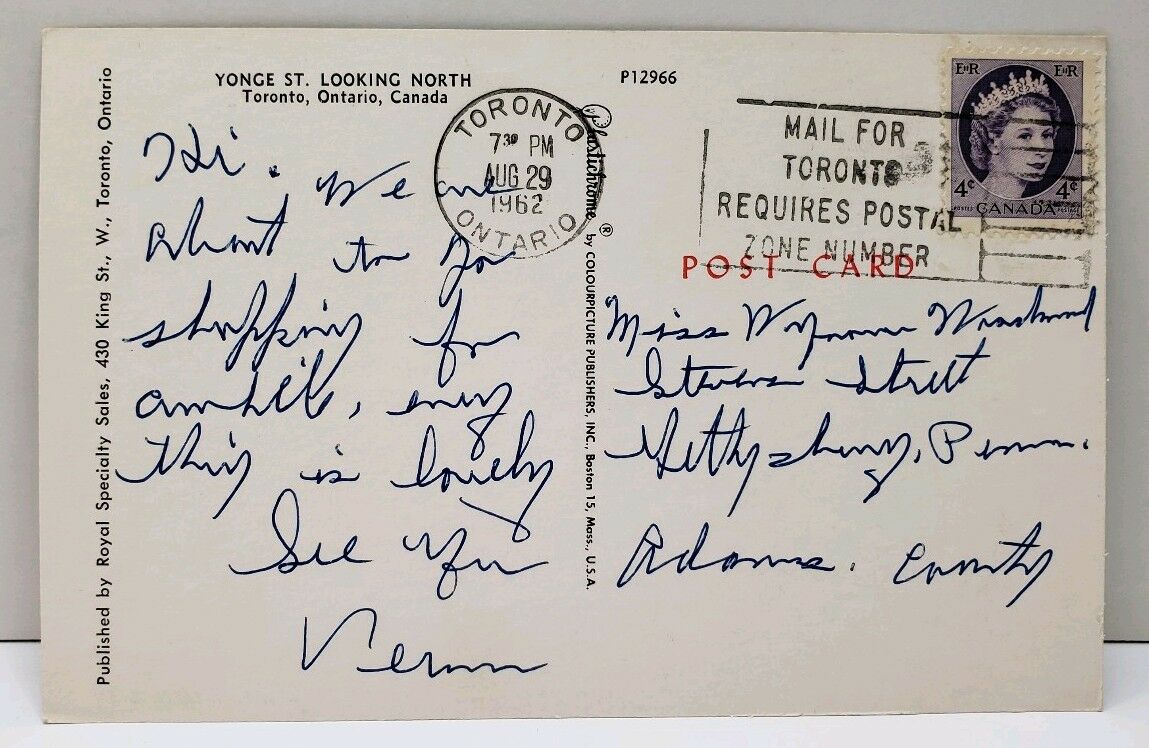 YONGE ST. LOOKING NORTH
Toronto, Ontario, Canada
P12966
Published by Royal Specialty Sales, 430 King St., W., Toronto, Ontario
Plastichrome ® by COLOURPICTURE PUBLISHERS, INC., Boston 15, Mass., U.S.A.
TORONTO
7 30 PM
AUG 29
1962
ONTARIO
MAIL FOR
TORONTO
REQUIRES POSTAL
ZONE NUMBER
EIIR EIIR
4¢ 4¢
POSTES POSTAGE
CANADA
POST CARD
Hi. We are
about to go
shopping for
awhile, every
thing is lovely
See You
Vernon
Miss
Stevens Street
Gettysburg, Penna.
Adams. County